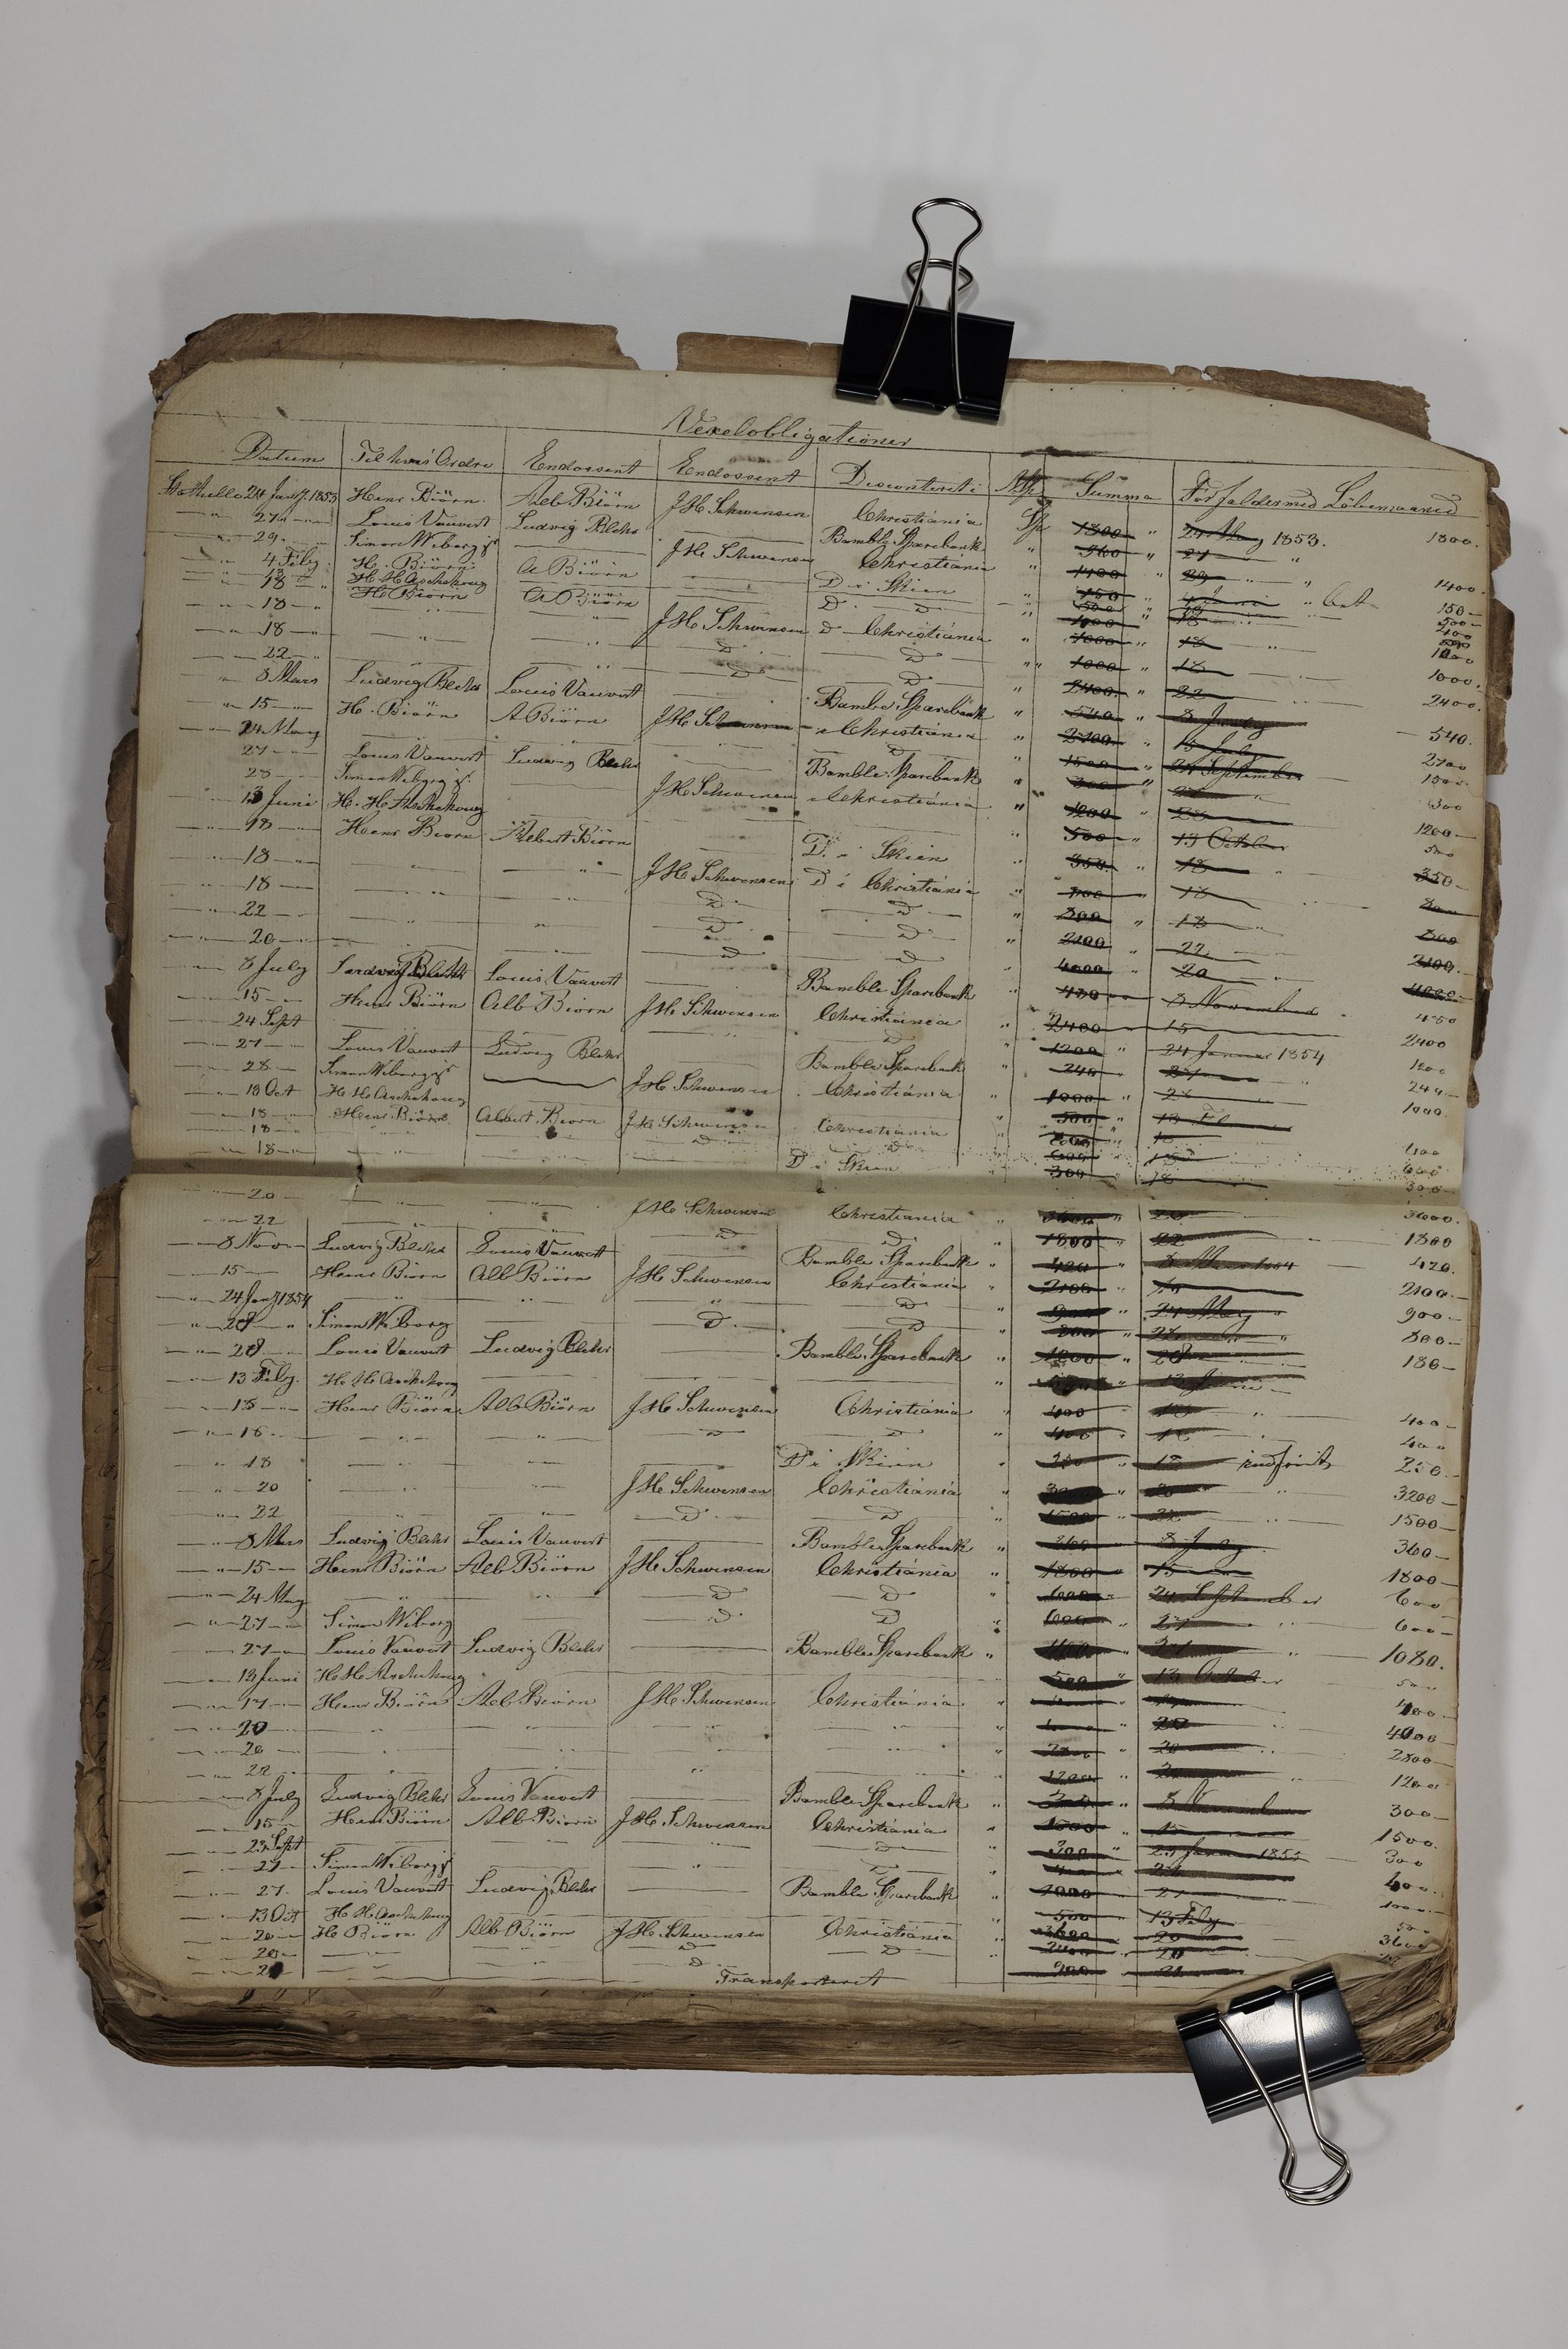 Vexelobligationer
Datum Til hvis Ordre Endossent Endossent Disconteret i Summa Forfalder med Löbemaaned
Stathelle 24 Janr 1853 Henr Biörn Alb Biörn J H Schwensen Christiania Sp 1800 " 24 May 1853. 1800.
" 27 Louis Vauvert Ludvig Blehr — Bamble Sparebank " 360 " 27 " "
" 29 Simon Wiborg — J H Schwensen Christiania " 1400 " 29 " " 1400.
4 Feby H. Biörn A Biörn — D i Skien " 150 " 4 Juni " bet 150 —
13 H H Aschehoug — D " 500 " 13 500 —
18 H Biörn A Biörn 400
" 18 " " J H Schwensen D Christiania " 1000 " 18 "
" 18 " " D D " 1000 " 18 1000.
" 22 D D " 2400 " 22 2400.
" 8 Mars Ludvig Blehr Louis Vauvert — Bamble Sparebank " 540 " 8 July — 540.
" 15 H. Biörn A Biörn J H Schwensen Christiania " 2700 " 15 July 2700
24 May " D " 1500 " 24 September 1500
27 Louis Vauvert Ludvig Blehr — Bamble Sparebank " 300 " 27 " 300
28 Simon Wiborg J H Schwensen Christiania " 1200 " 28 1200 —
13 Juni H. H Aschehoug — " 500 " 13 October 500
" 18 Henr Biörn Albert Biörn — D. i Skien " 350. " 18 350 —
" 18 " " J H Schwensen D i Christiania " 800 " 18 800
" 18 " " D D " 800 " 18 800
" 22 " D D " 2100 " 22 2100.
" 20 " D D " 4000 " 20 4000.
" 8 July Ludvig Blehr Louis Vauvert — Bamble Sparebank " 450 8 November 450
" 15 Henr Biörn Alb Biörn J H Schwensen Christiania " 2400 15 2400
" 24 Sept " " D " 1200 " 24 Januar 1854 1200
" 27 Louis Vauvert Ludvig Blehr — Bamble Sparebank " 240 27 " 240.
" 28 Simon Wiborg — J H Schwensen Christiania " 1000 " 28 1000.
" 13 Oct H H Aschehoug — " 500 " 13 Feb
" 18 Henr Biörn Albert Biörn J H Schwensen Christiania 18 400
" 18 " D D 600 18 600
" 18 " D i Skien 300 18 300
" 20 " " J H Schwensen Christiania " 3600 " 20 3600.
" 22 " " D D " 1800 " 22 1800
" 8 Nov Ludvig Blehr Louis Vauvert — Bamble Sparebank " 420 " 8 1854 420.
" 15 Henr Biörn Alb Biörn J H Schwensen Christiania " 2100 " 15 2100.
" 24 Janr 1854 " " " D " 900 " 24 May " 900 —
" 28 " Simon Wiborg — D. D " 800 " 28 " 800 —
" 28 Louis Vauvert Ludvig Blehr — Bamble Sparebank " " 28 180 —
" 13 Feby. H. H. Aschehoug — " 13 Juni
" 18 Henr Biörn Alb Biörn J H Schwensen Christiania " 400 " 18 " 400 —
" 18 " " D D " 400 " 18 400
" 18 " " — D i Skien " 250 " 18 indfriet 250 —
" 20 " " J H Schwensen Christiania " " 20 " 3200 —
" 22 " " D D " 1500 " 22 1500 —
" 8 Mars Ludvig Blehr Louis Vauvert — Bamble Sparebank " 360 " 8 July 360 —
" 15 Henr Biörn Alb Biörn J H Schwensen Christiania " 1800 " 15 " 1800 —
" 24 May " D D " 600 " 24 September 600
" 27 Simon Wiborg — D D " 600 " 27 " 600
" 27 Louis Vauvert Ludvig Blehr — Bamble Sparebank " " 27 " 1080.
" 13 Juni H H Aschehoug — " 500 " 13 October 500
" 17 Henr Biörn Alb Biörn J H Schwensen Christiania " " 17 " 400 —
" 20 " " " " " " 20 4000
" 20 " " " " " 2800 " 20 " 2800 —
" 22 " " " " " 1200 " 22 " 1200
8 July Ludvig Blehr Louis Vauvert — Bamble Sparebank " 300 " 8 November 300 —
" 15 Henr Biörn Alb Biörn J H Schwensen Christiania " 1500 " 15 1500.
" 23 Sept " " D " 300 " 23 Januar 1855 300
" 27 Simon Wiborg — " D " " 27 400.
" 27. Louis Vauvert Ludvig Blehr — Bamble Sparebank " 1000 " 27 1000.
" 13 Oct H H Aschehoug — " 500 " 13 Feby 500
" 20 H Biörn Alb Biörn J H Schwensen Christiania " 3600 " 20 3600
" 20 D D " 2400 " 20
" D " 900
Transporteret